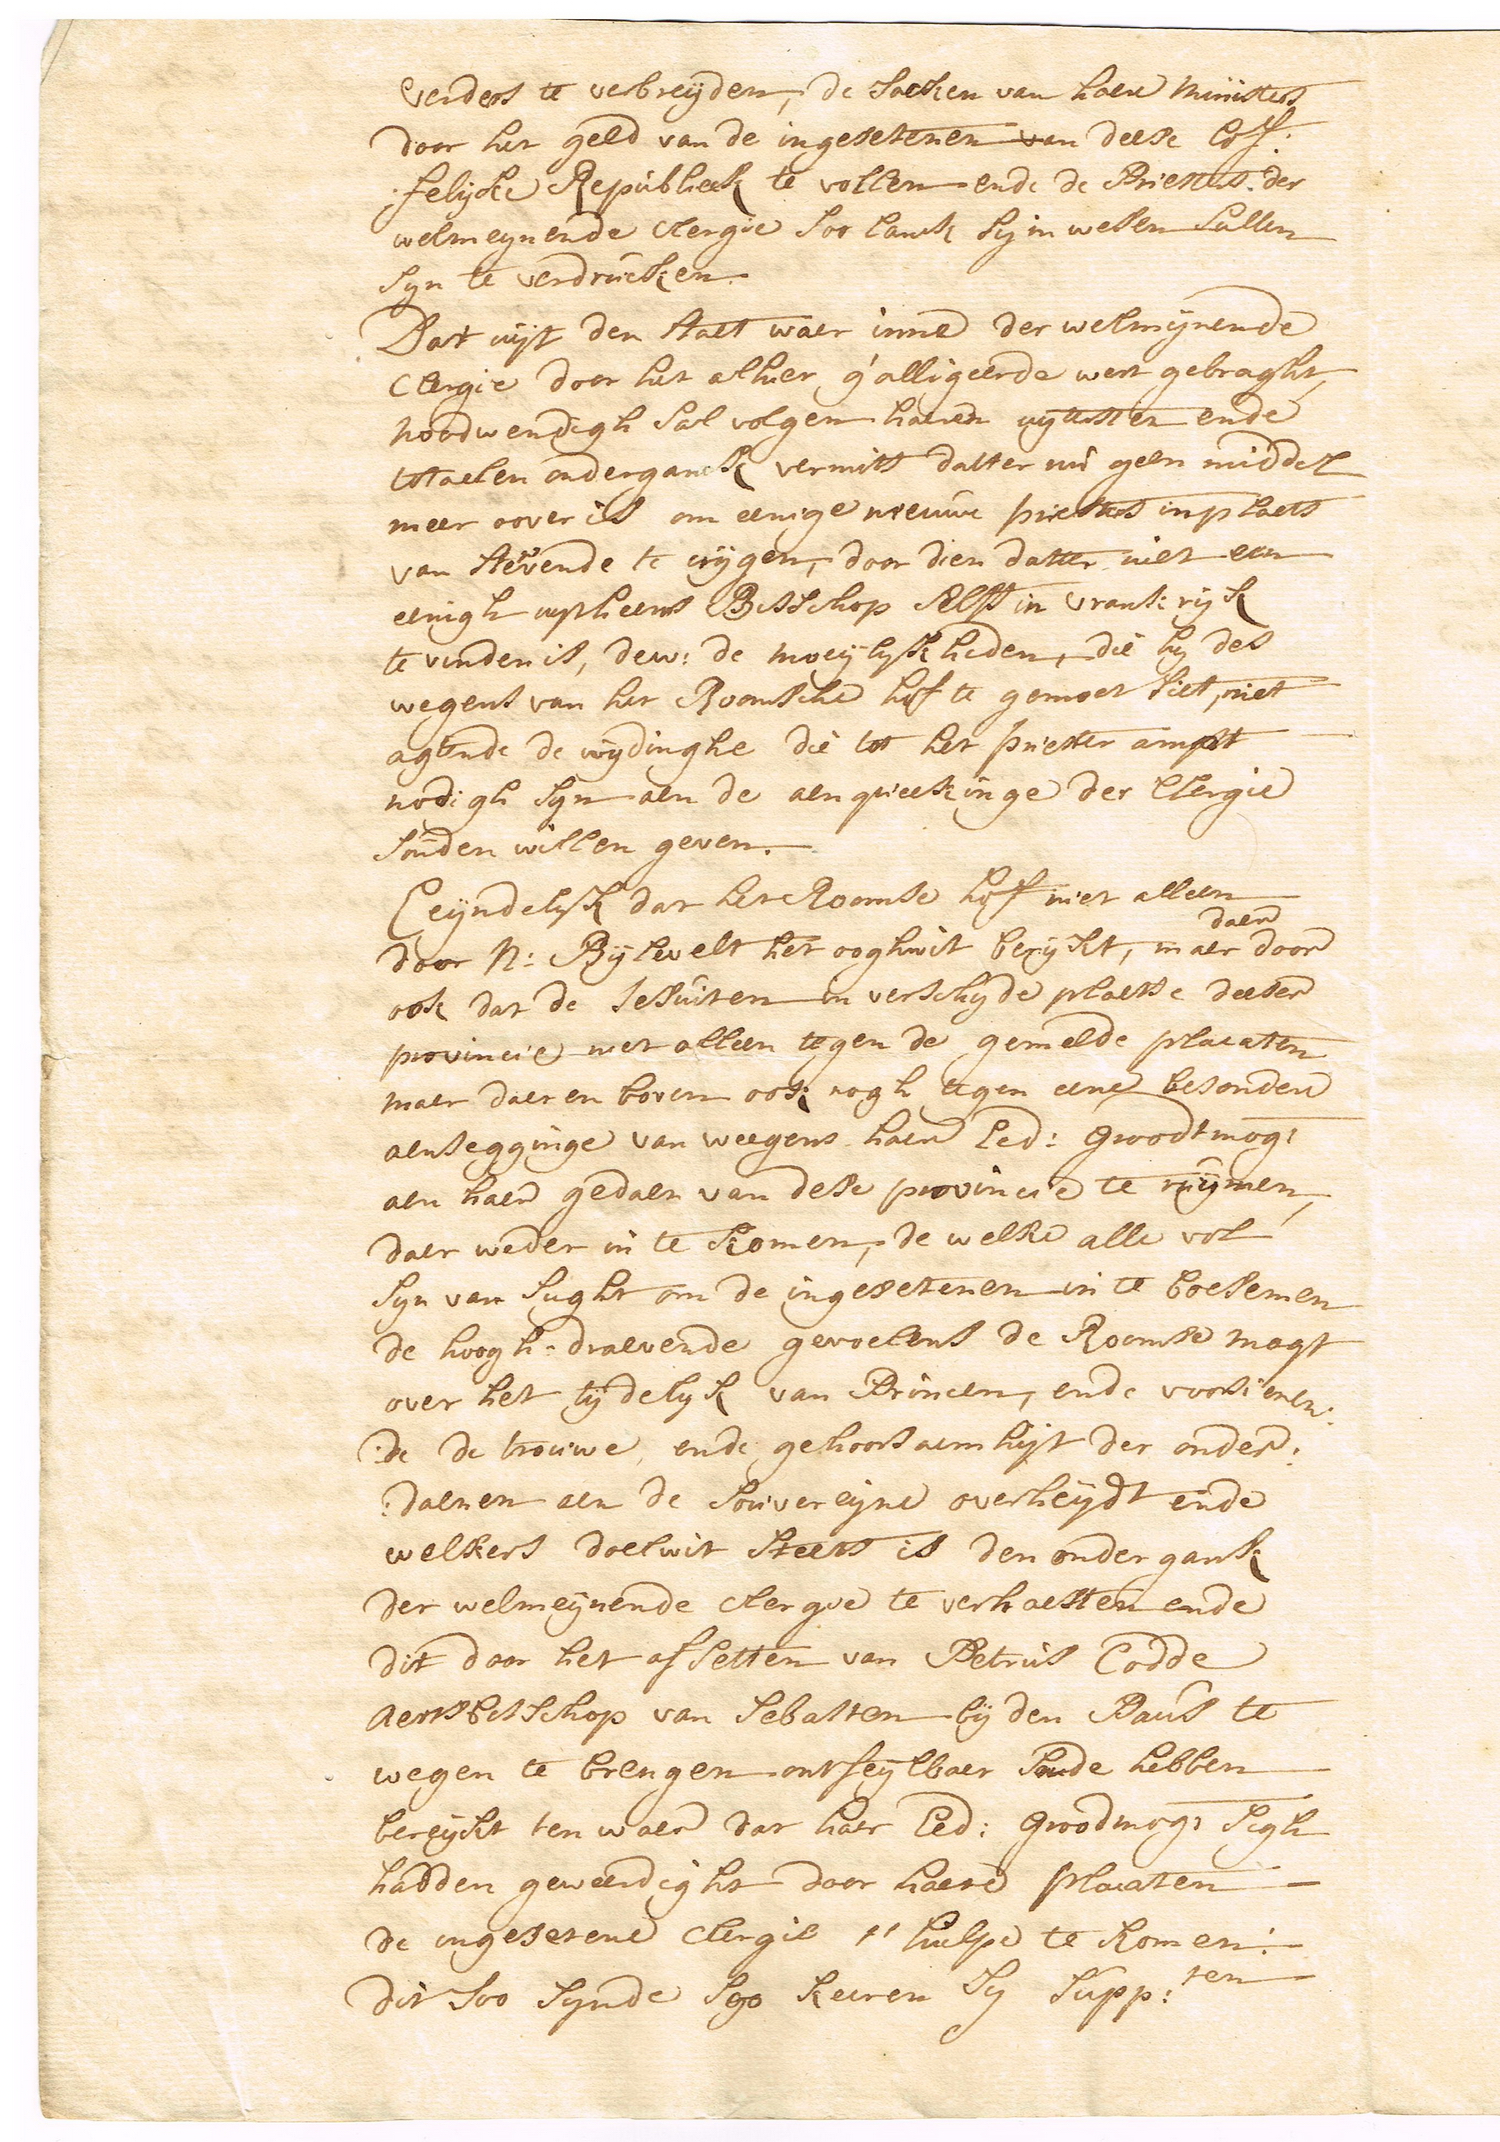 verders te verbreyden, de sacken van haere Ministers
door het geld van de ingesetenen van deese lof:
:felijcke Republieck te vollen ende de Priesters der
welmeynende Clergie soo lanck sy in wesen sullen
syn te verdrucken.
Dat uijt den staet waer inne der welmijnende
Clergie door het alhier g'alligeerde wert gebraght,
noodwendigh sal volgen haeren uytersten ende
totaelen onderganck vermits datter nu geen middel
meer oover is om eenige nieuwe priesters in plaets
van stervende te crijgen, door dien datter niet een
eenigh uytheems Bisschop selfs in vrankrijk
te vinden is, dew: de moeijlyckheden, die hy des
wegens van het Roomsche hof te gemoet siet, niet
agtende de wijdinghe die tot het priester ampt
nodigh syn aen de aenqueekinge der Clergie
souden willen geven.
Eeyndelyk dat het Roomse hof niet alleen
door N: Bijlevelt het ooghwit berijkt, maer daer door
ook dat de Jesuiten in verschyde plaetse deeser
provincie niet alleen tegen de gemelde placaten
maer daer en boven ook nogh tegen eene besondere
aensegginge van weegens haer Eed: Grootmog:
aen haer gedaen van dese provincie te ruijmen,
daer weder in te komen, de welke alle vol
syn van sught om de ingesetenen in te boesemen
de hoogh-draevende gevoelens de Roomse magt
over het tijdelyk van Princen, ende
:de de trouwe, ende gehoorsaemhijt der onder:
:daenen aen de souvereyne overheydt ende
welkers doelwit steets is den ondergank
der welmeijnende clergie te verhaesten ende
dit door het afsetten van Petrus Codde
Aertsbisschop van Sebasten bij den Paus te
wegen te brengen ontfeylbaer soude hebben
bereyckt ten waer dat haer Eed: Groodmog: sigh
hadden geweerdight door haere placaten
de ingesetene Clergie t' hulpe te komen:
dit soo synde soo keeren sy supp:ten